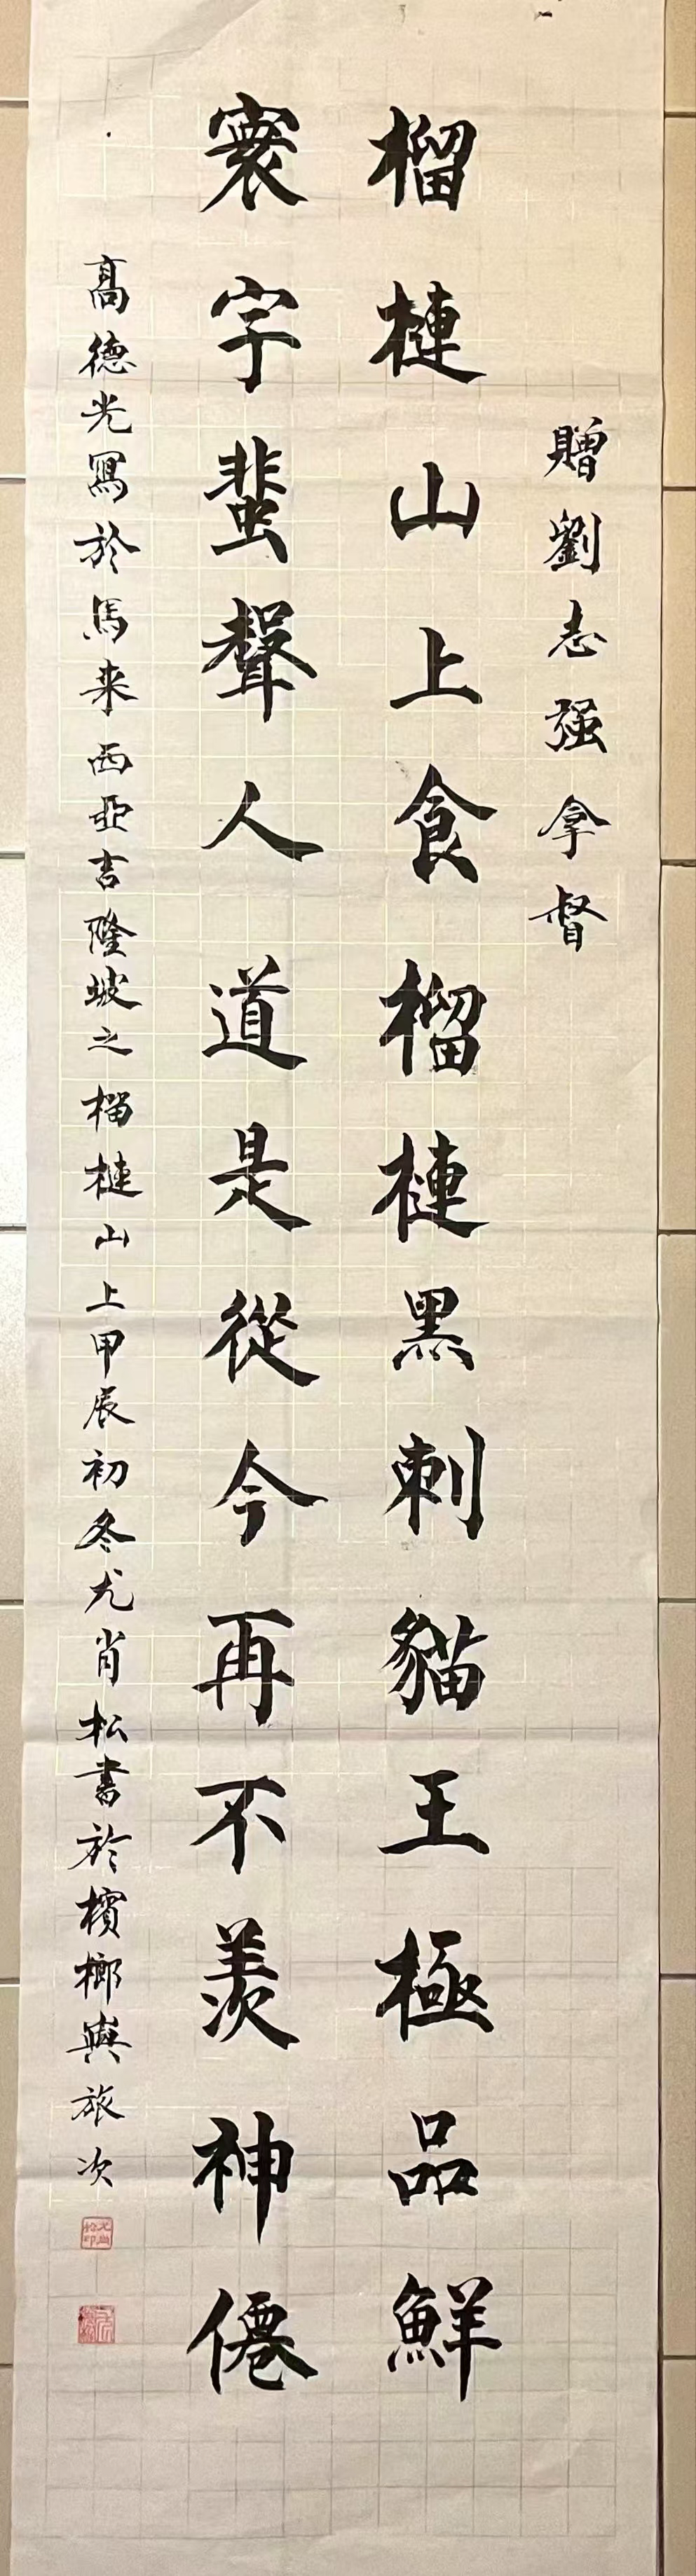 贈劉志强拿督
榴槤山上食榴槤黑刺貓王極品鮮
寰宇蜚聲人道是從今再不羨神僊
髙德光寫於馬来西亞吉隆坡之榴槤山上甲辰初冬尤肖松書於檳榔嶼旅次
尤肖松印